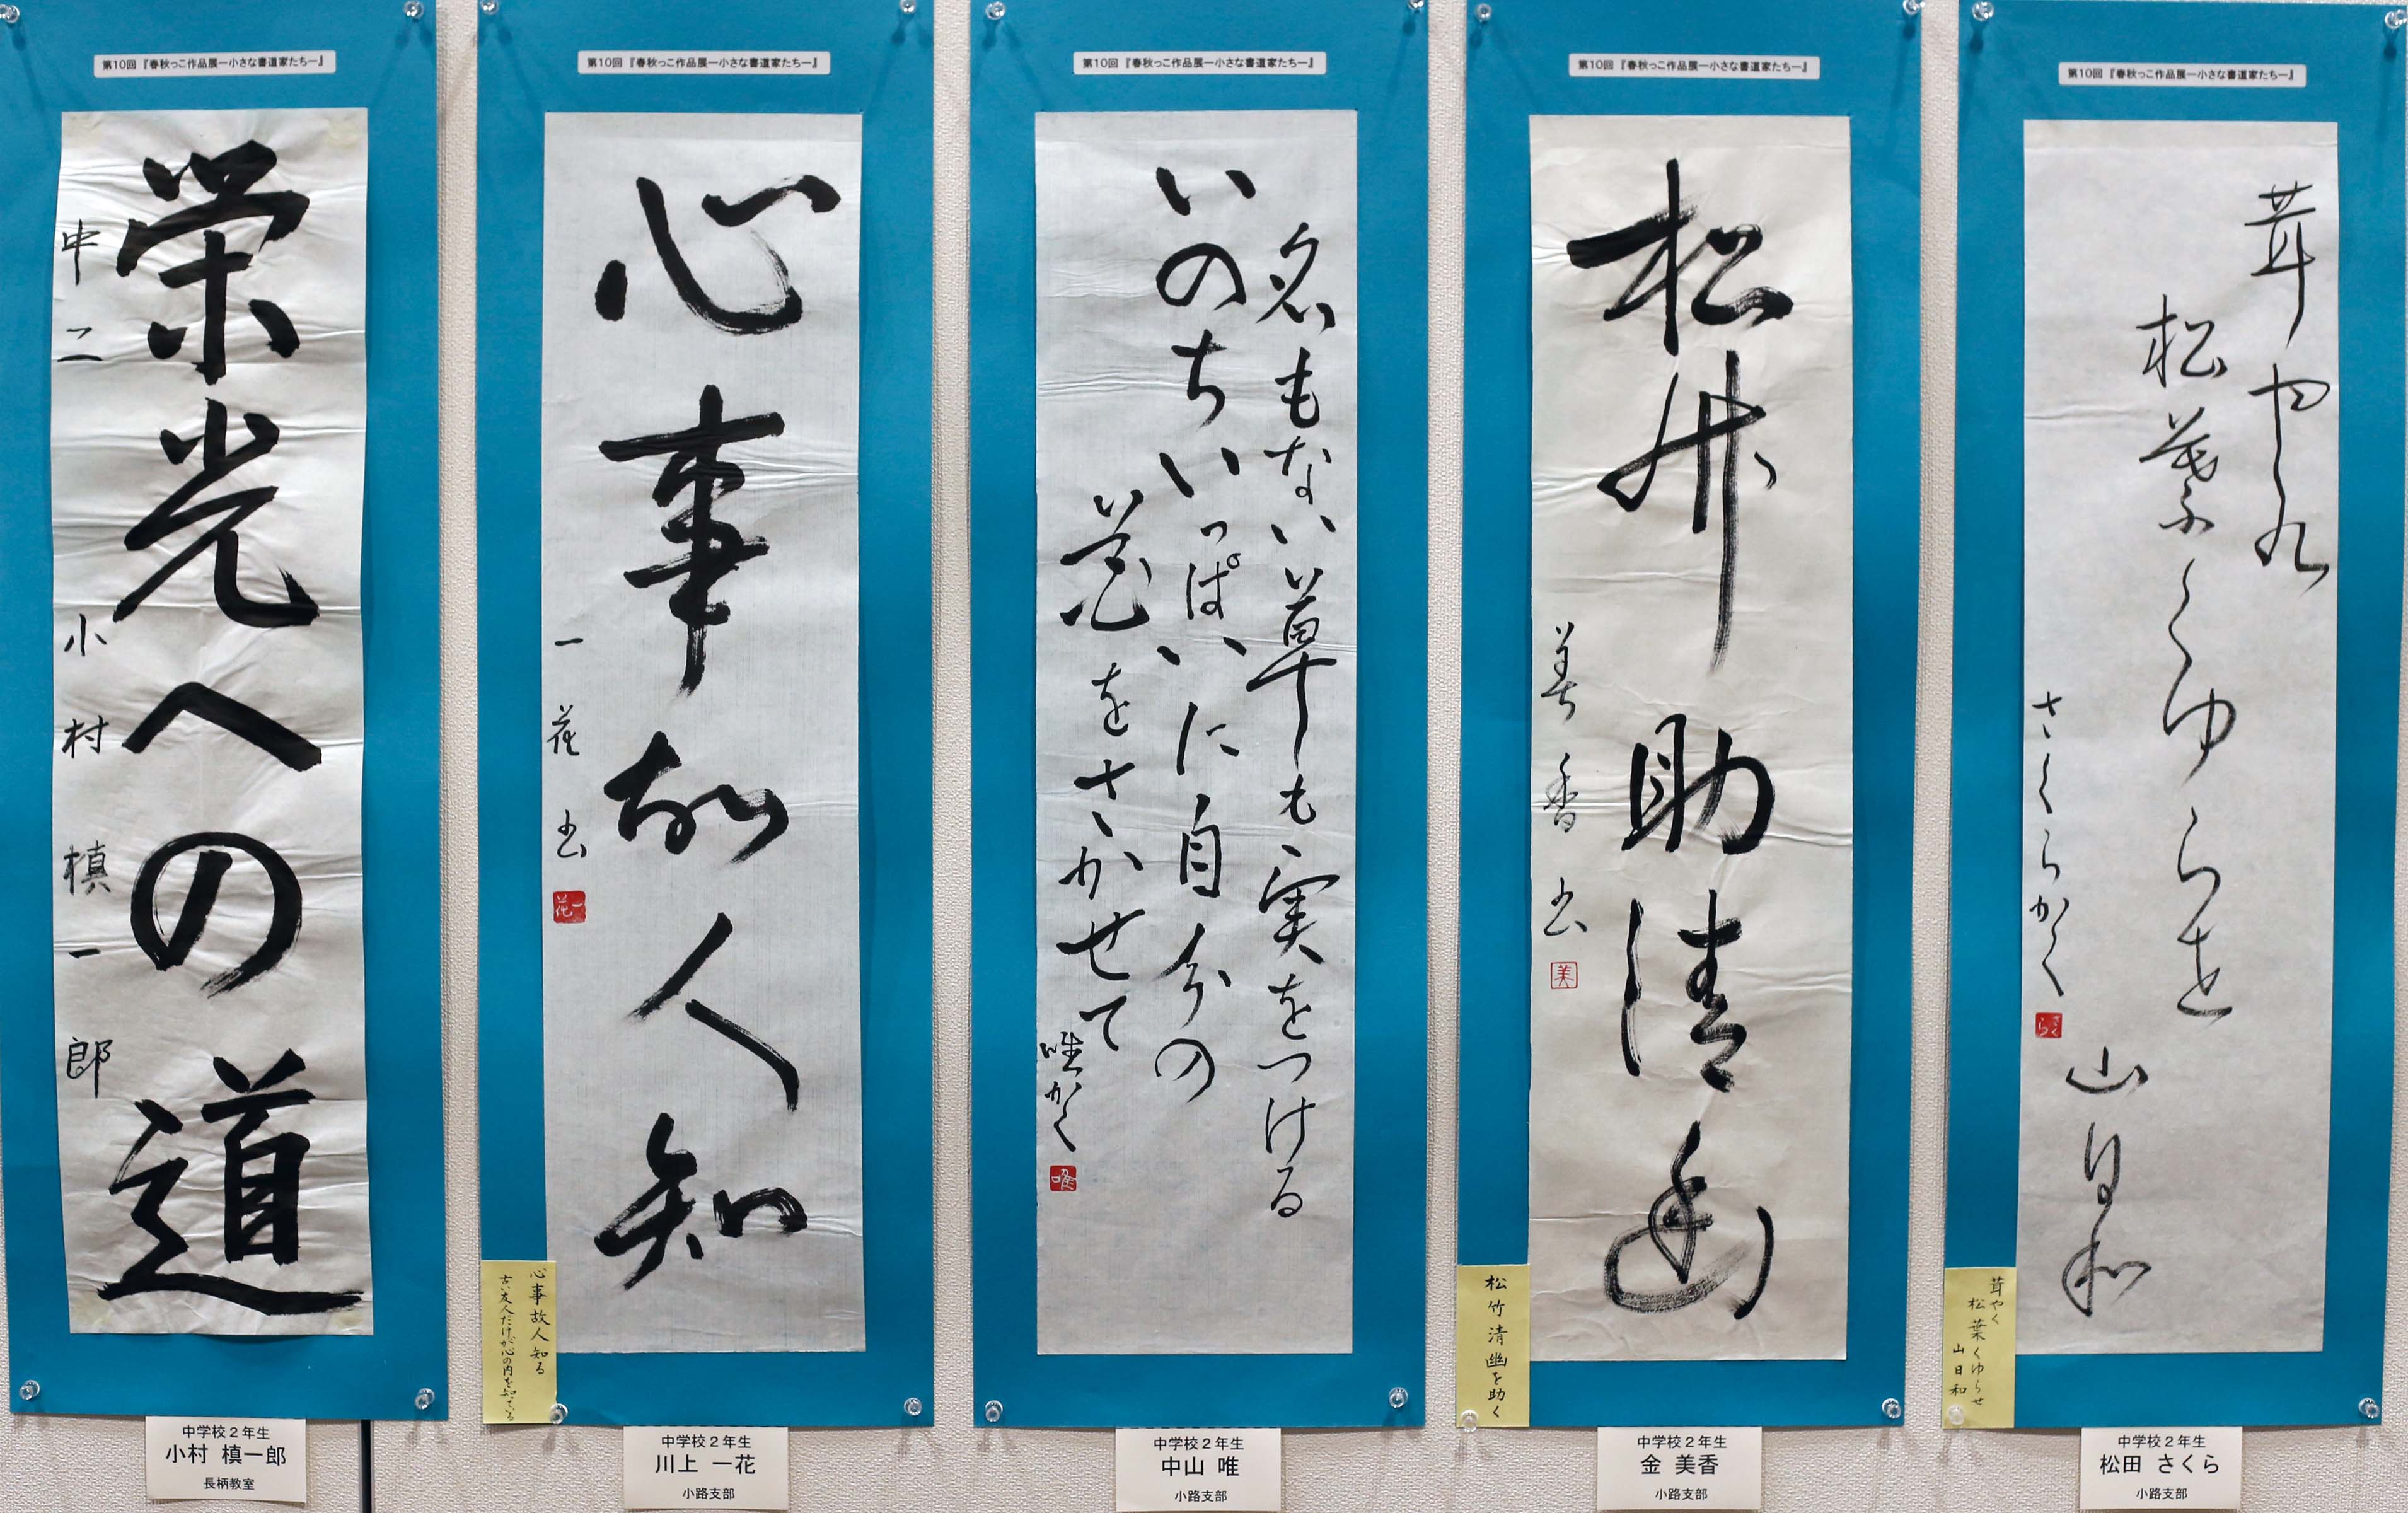 第10回『春秋っこ作品展ー小さな書道家たちー』
栄光への道
中二 小村槙一郎
中学校2年生
小村 槙一郎
長柄教室
第10回『春秋っこ作品展ー小さな書道家たちー』
心事故人知
一花書
一花
心事故人知る
古い友人だけが心の内を知っている
中学校2年生
川上 一花
小路支部
第10回『春秋っこ作品展ー小さな書道家たちー』
名もない草も実をつける
いのちいっぱいに自分の
花をさかせて
唯かく
唯
中学校2年生
中山 唯
小路支部
第10回『春秋っこ作品展ー小さな書道家たちー』
松竹助清幽
美香書
美
松竹清幽を助く
中学校2年生
金 美香
小路支部
第10回『春秋っこ作品展ー小さな書道家たちー』
茸やく
松葉くゆらせ
山日和
さくらかく
さくら
茸やく
松葉くゆらせ
山日和
中学校2年生
松田 さくら
小路支部